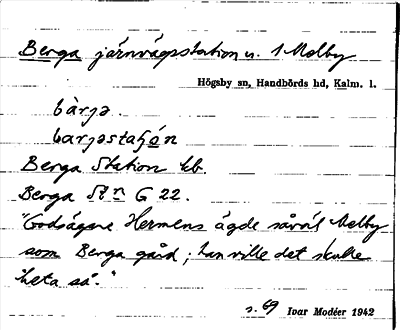 Berga järnvägsstation u. 1 Melby
Högsby sn, Handbörds hd, Kalm. l.
bàrjə.
barjəstaʃón
Berga Station kb.
Berga St<u>n</u> G 22.
"Godsägare Hermens ägde såväl Melby
som Berga gård; han ville det skulle
heta så."
s. 69 Ivar Modéer 1942